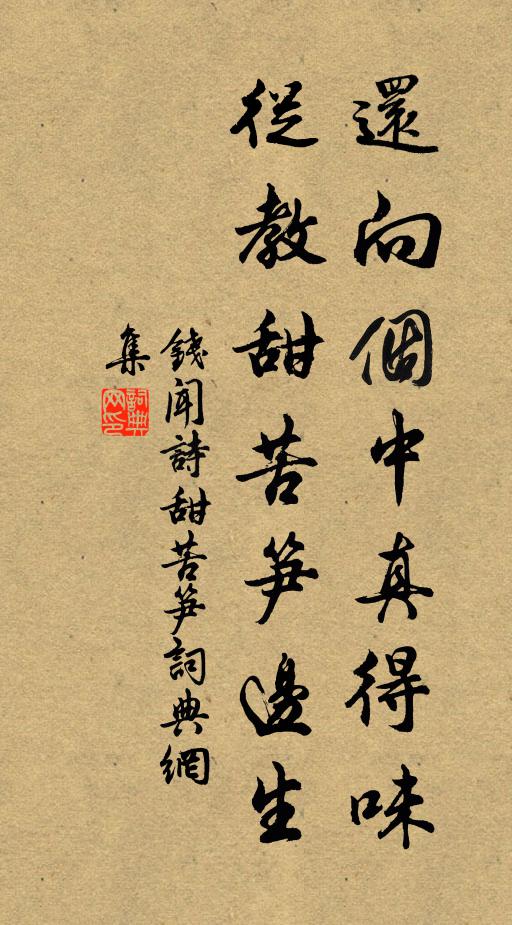 還向個中真得味
從教甜苦笋邊生
錢聞詩甜苦笋詞典網
集
詞典網印